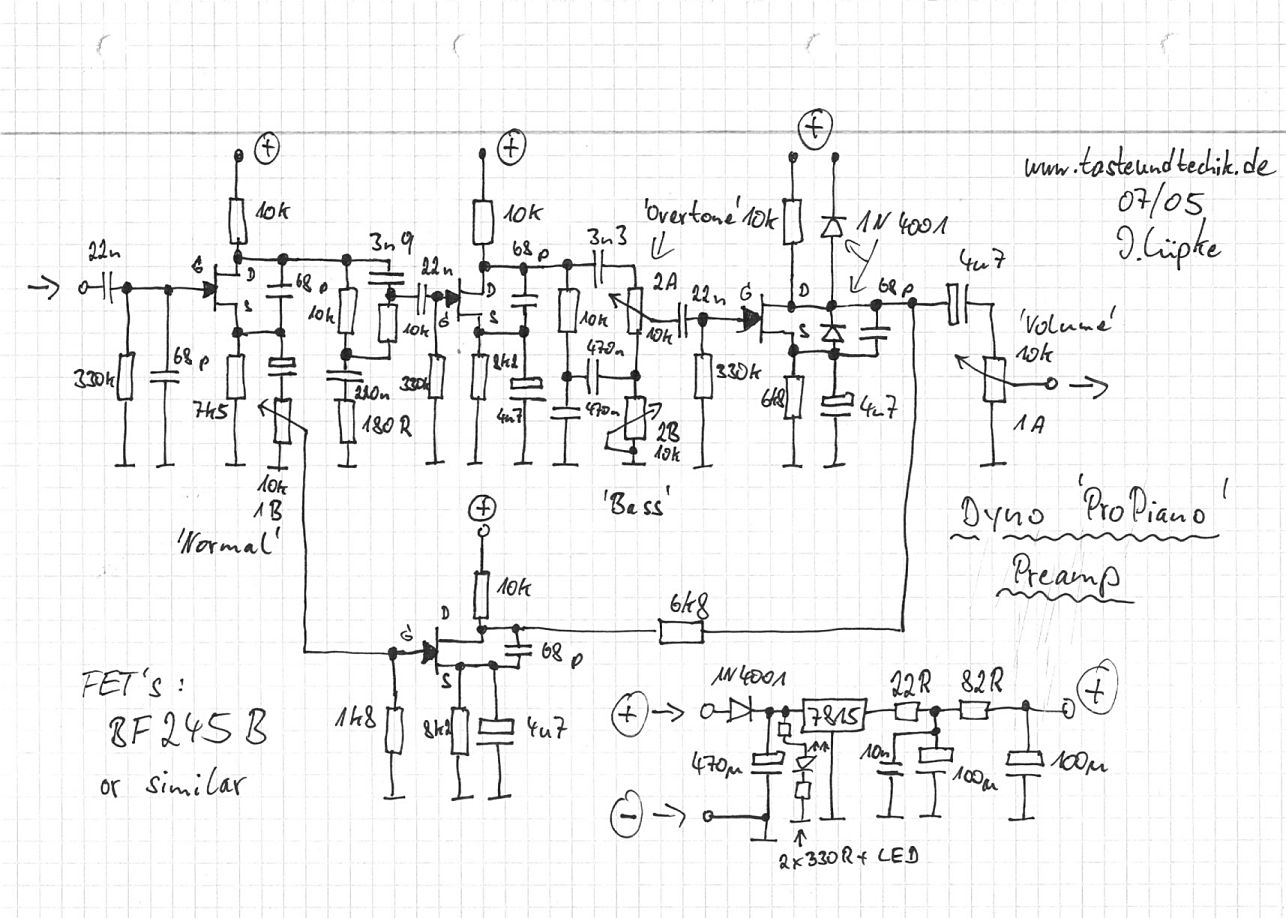 +
+
+
www.tasteundtechik.de
07/05
J. Lüpke
10k
10k
'Overtone'
10k
1N4001
22n
3n9
68p
3n3
4u7
G
D
S
68p
22n
G
D
S
2A
22n
G
D
S
68p
'Volume'
10k
10k
10k
10k
10k
330k
68p
7k5
220n
330k
8k2
470n
330k
180R
4u7
470n
6k8
4u7
1A
10k
1B
2B
10k
'Normal'
'Bass'
Dyno 'ProPiano'
Preamp
+
10k
6k8
G
D
S
68p
1k8
8k2
4u7
FET's:
BF245B
or similar
1N4001
22R
82R
+
+
7815
470µ
10n
100µ
100µ
-
2x330R+LED